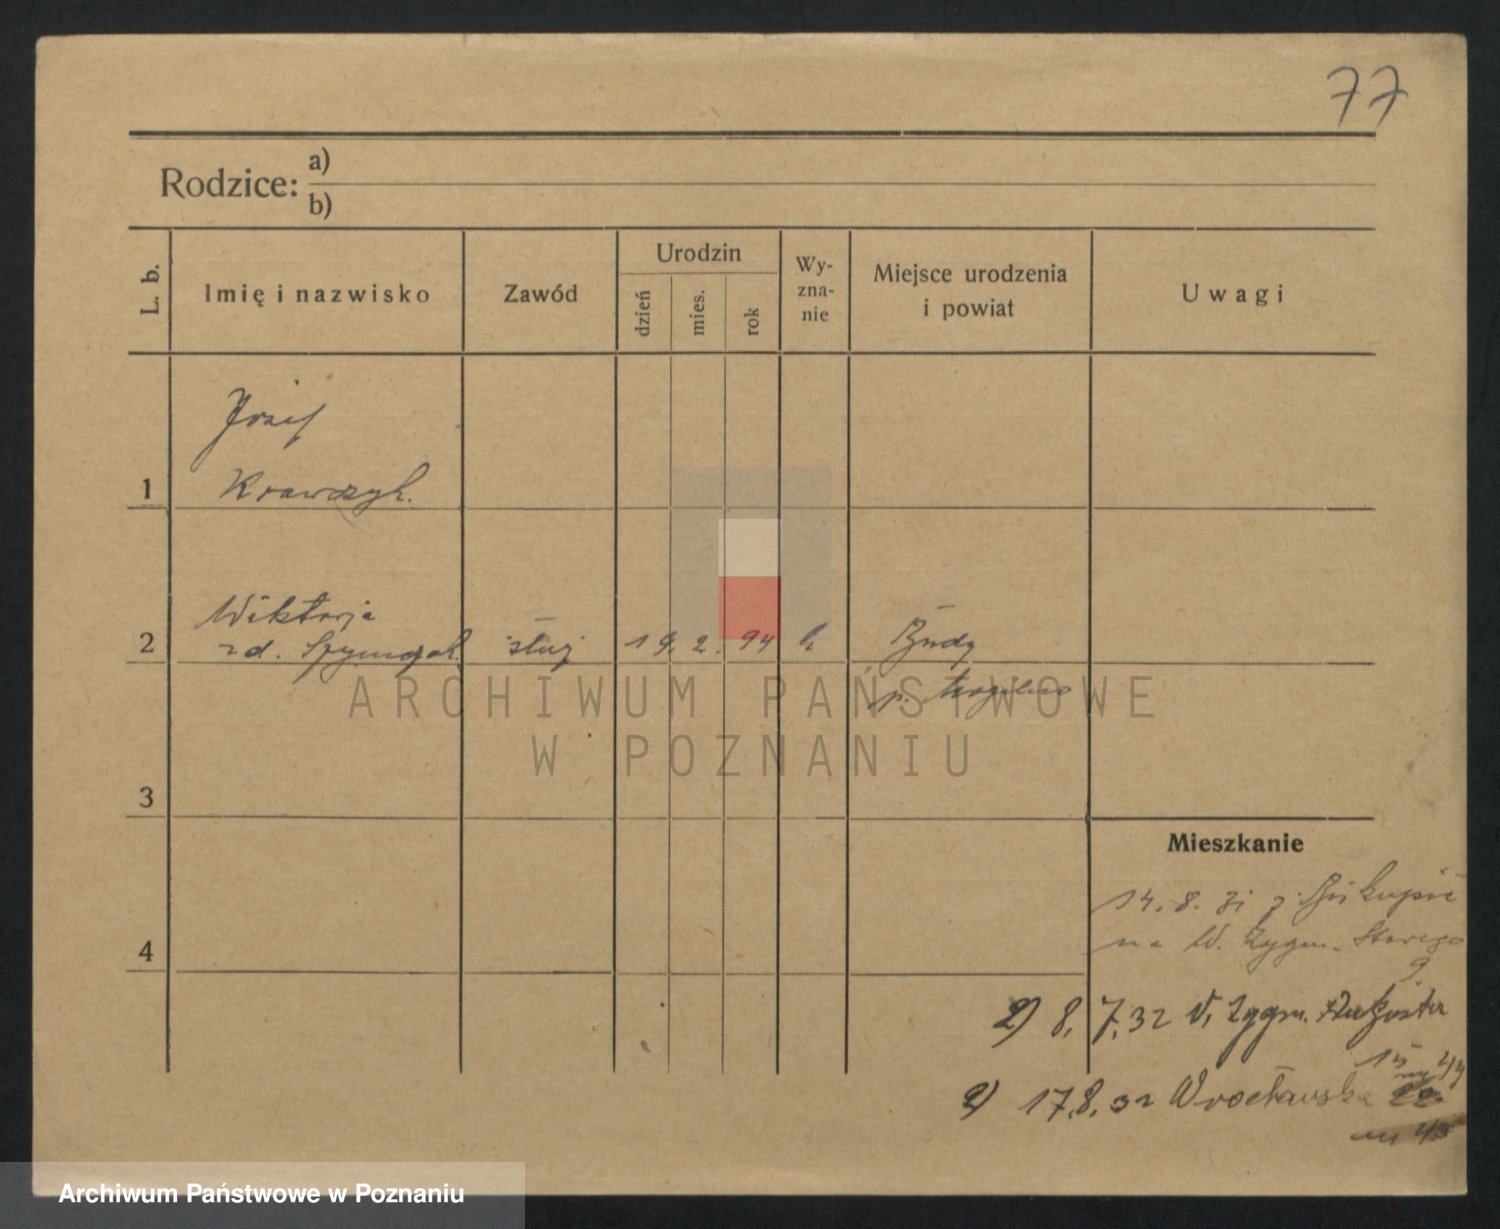 77
Rodzice: a)
b)
L. b.
Imię i nazwisko
Zawód
Urodzin
dzień
mies.
rok
Wy-
zna-
nie
Miejsce urodzenia
i powiat
Uwagi
Józef
1 Krawczyk.
Wiktorja
2 zd. Szymczak służ 19. 2. 94 k Budy
p. Mogilno
ARCHIWUM PAŃSTWOWE
W POZNANIU
3
Mieszkanie
14. 8. 31 z Biskupic
4
na W. Zygm. Starego
9
2) 8. 7. 32 W. Zygm. Augusta
15
2) 17.8. 32 Wrocławska 22
m 45
Archiwum Państwowe w Poznaniu